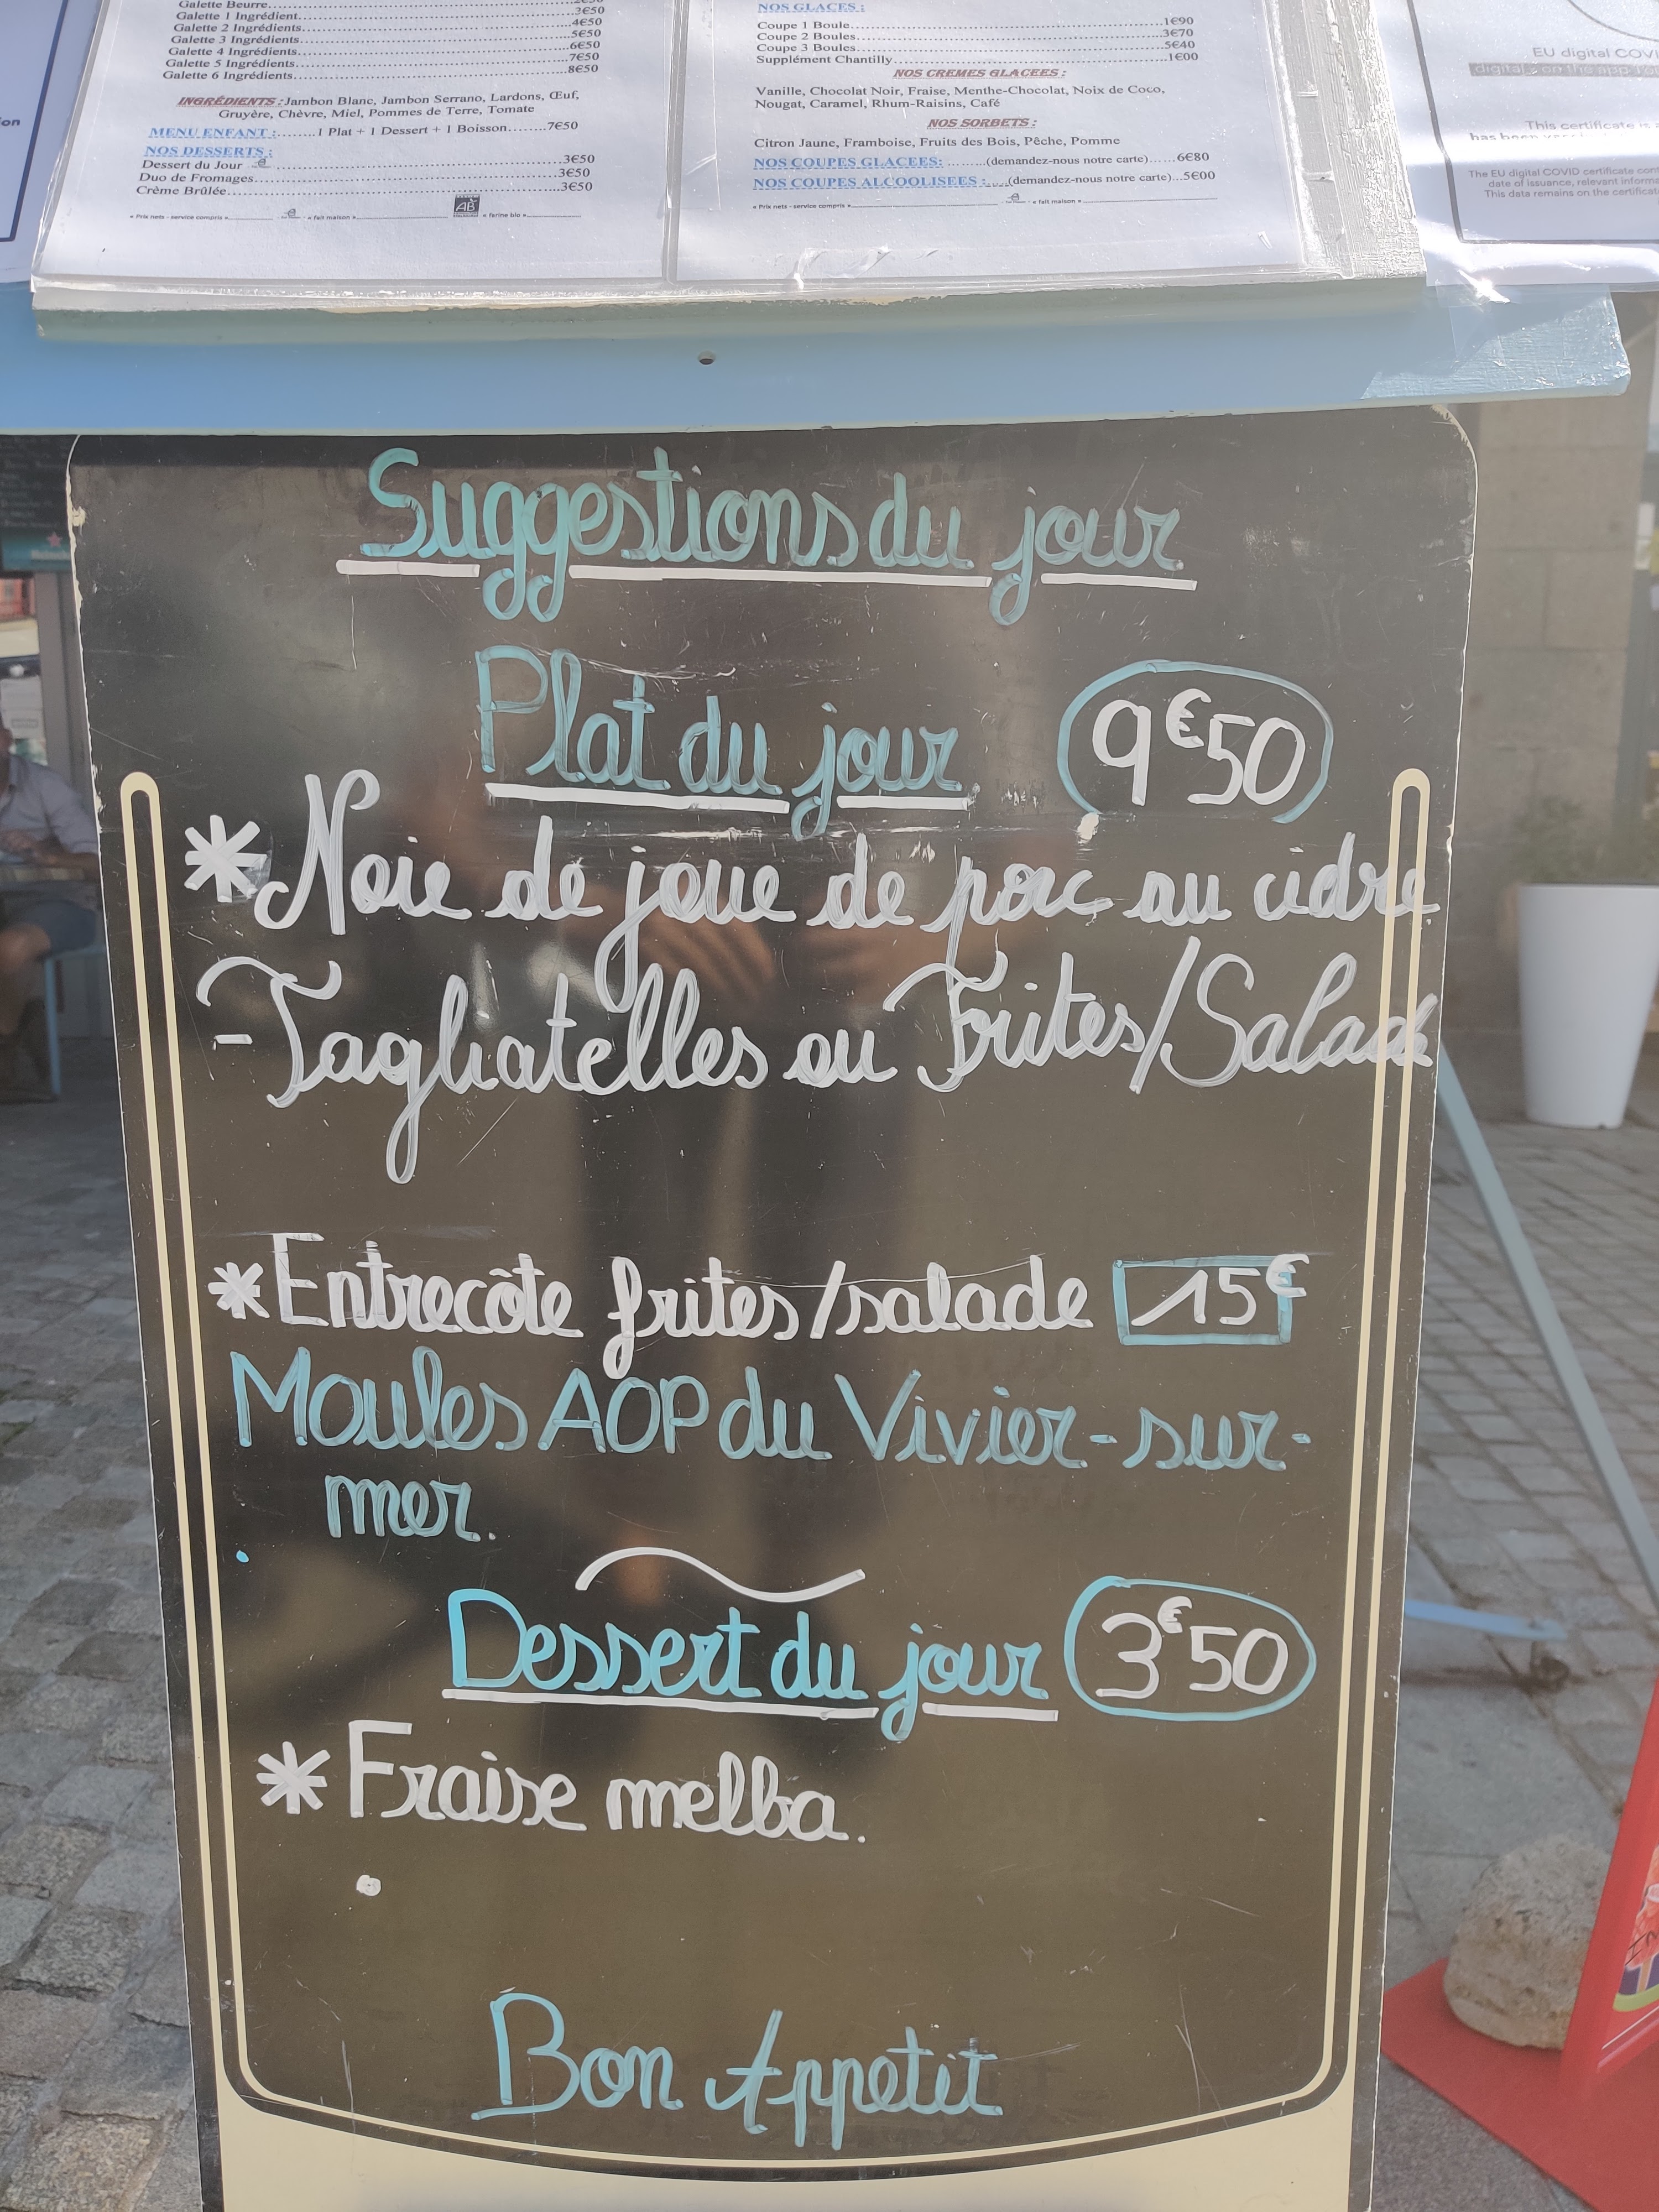 Galette Beurre
Galette 1 Ingrédient 3€50
Galette 2 Ingrédients 4€50
Galette 3 Ingrédients 5€50
Galette 4 Ingrédients 6€50
Galette 5 Ingrédients 7€50
Galette 6 Ingrédients 8€50
INGRÉDIENTS : Jambon Blanc, Jambon Serrano, Lardons, Œuf,
Gruyère, Chèvre, Miel, Pommes de Terre, Tomate
MENU ENFANT :........1 Plat + 1 Dessert + 1 Boisson.......7€50
NOS DESSERTS :
Dessert du Jour 3€50
Duo de Fromages 3€50
Crème Brûlée 3€50
« Prix nets - service compris » « fait maison » AB « farine bio »
NOS GLACES :
Coupe 1 Boule 1€90
Coupe 2 Boules 3€70
Coupe 3 Boules 5€40
Supplément Chantilly 1€00
NOS CREMES GLACEES :
Vanille, Chocolat Noir, Fraise, Menthe-Chocolat, Noix de Coco,
Nougat, Caramel, Rhum-Raisins, Café
NOS SORBETS :
Citron Jaune, Framboise, Fruits des Bois, Pêche, Pomme
NOS COUPES GLACEES: (demandez-nous notre carte) 6€80
NOS COUPES ALCOOLISEES : (demandez-nous notre carte) 5€00
« Prix nets - service compris » « fait maison »
EU digital COVI
This certificate is
The EU digital COVID certificate con
date of issuance, relevant informa
This data remains on the certificat
Suggestions du jour
Plat du jour 9€50
*Noie de joue de porc au cidre
-Tagliatelles ou Frites/Salade
*Entrecôte frites/salade 15€
Moules AOP du Vivier-sur-
mer.
Dessert du jour 3€50
*Fraise melba.
Bon Appetit